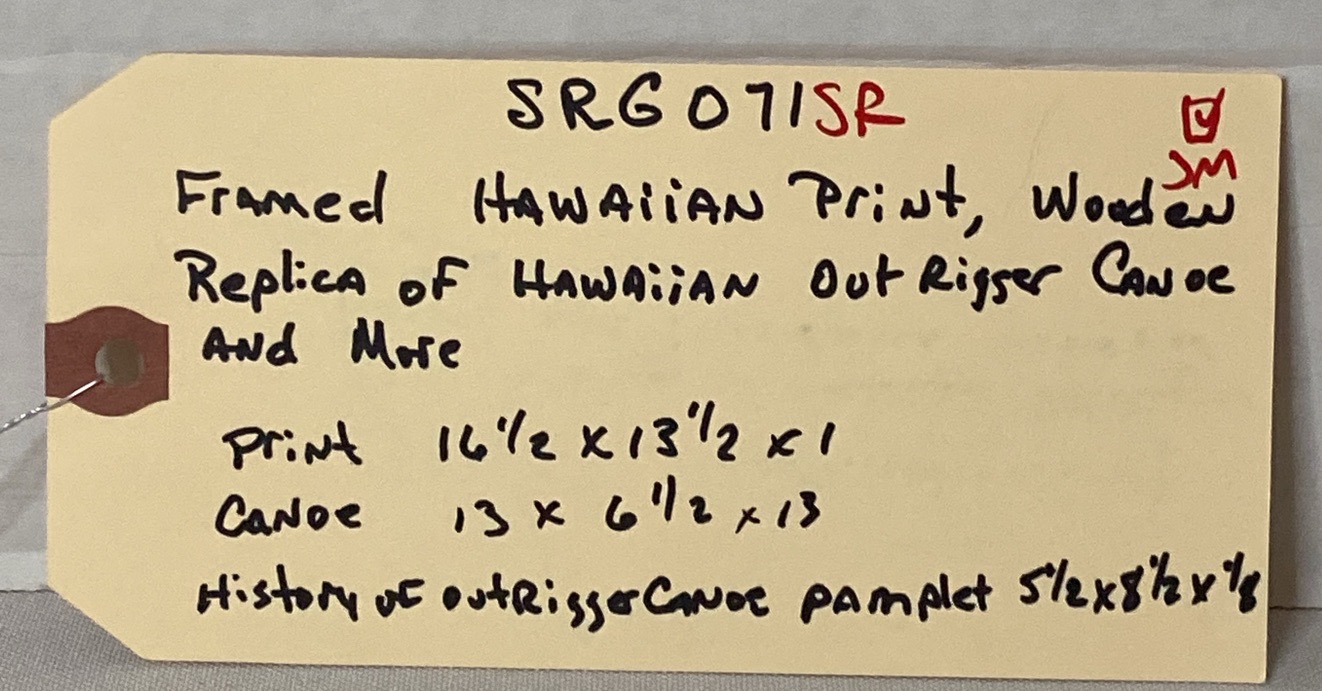 SRG071SR
SM
Framed Hawaiian Print, Wooden
Replica of Hawaiian Out Rigger Canoe
And More
Print 16 1/2 x 13 1/2 x 1
Canoe 13 x 6 1/2 x 13
History of outRigger Canoe pamplet 5 1/2 x 8 1/2 x 1/8